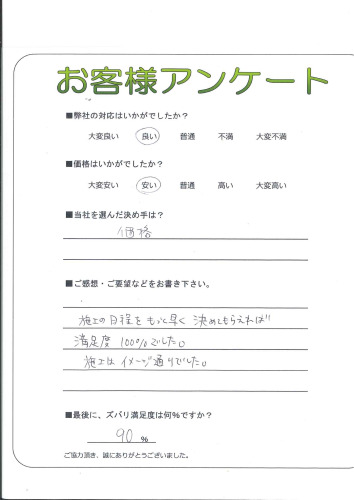 お客様アンケート
■弊社の対応はいかがでしたか？
大変良い 良い 普通 不満 大変不満
■価格はいかがでしたか？
大変安い 安い 普通 高い 大変高い
■当社を選んだ決め手は？
価格
■ご感想・ご要望などをお書き下さい。
施工の日程をもっと早く決めてもらえれば
満足度100%でした。
施工はイメージ通りでした。
■最後に、ズバリ満足度は何%ですか？
90 %
ご協力頂き、誠にありがとうございました。